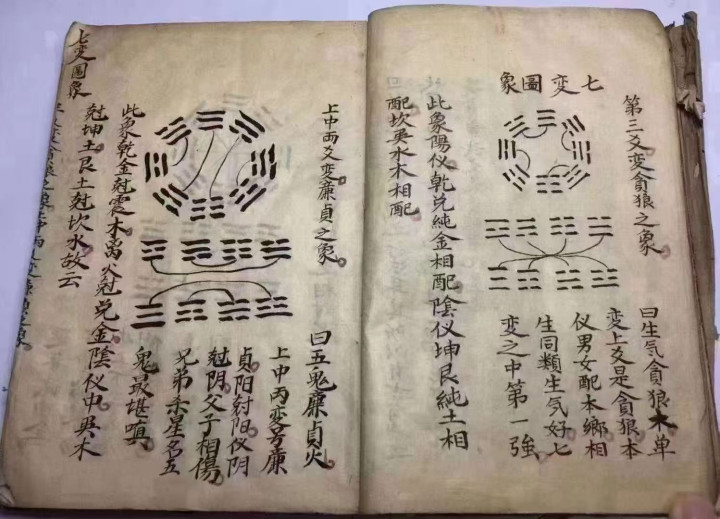 七變圖象
第三爻變貪狼之象
曰生气貪狼木单
变上爻是貪狼本
仪男女配本鄉相
生同類生气好七
变之中第一強
此象陽仪乾兑純金相配陰仪坤艮純土相
配坎巽水木相配
上中两爻变廉貞之象
曰五鬼廉貞火
上中丙变号廉
貞阳尅阳仪阴
尅阴父子相傷
兄弟杀星名五
鬼最堪嗔
此象乾金尅震木离火尅兑金陰仪中巽木
尅坤土艮土尅坎水故云
七变圖象